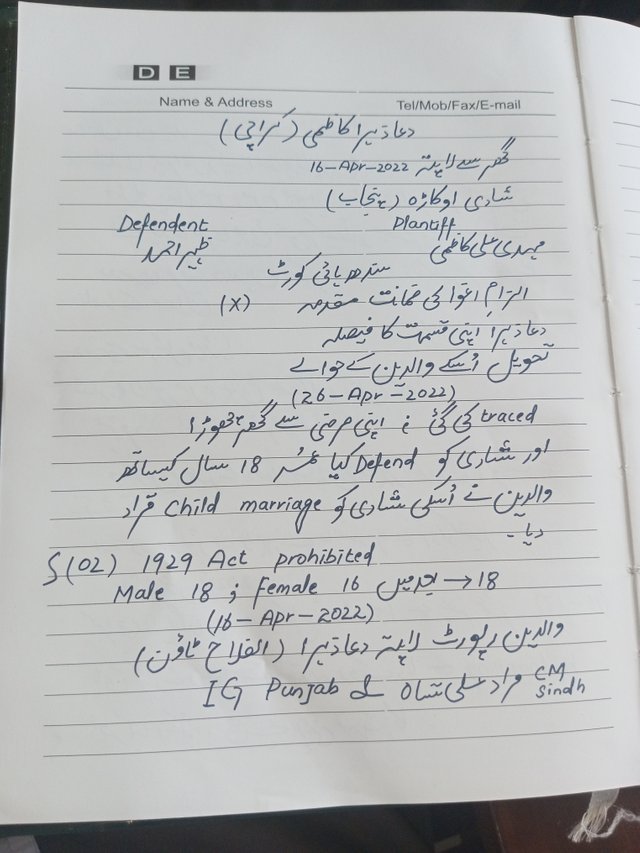 D E
Name & Address Tel/Mob/Fax/E-mail
دعا زہرا کاظمی (کراچی)
گھر سے لاپتہ 16-Apr-2022
شادی اوکاڑہ (پنجاب)
Plantiff Defendent
مہدی علی کاظمی ظہیر احمد
سندھ ہائی کورٹ
الزام اغوا کی ضمانت مقدمہ (X)
دعا زہرا اپنی قسمت کا فیصلہ
تحویل اُسکے والدین کے حوالے
(26-Apr-2022)
traced کی گئی ; اپنی مرضی سے گھر چھوڑا
اور شادی کو Defend کیا عمر 18 سال کیساتھ
والدین نے اُسکی شادی کو Child marriage قرار
دیا۔
S(02) 1929 Act prohibited
Male 18 ; Female 16 بعد میں → 18
(16-Apr-2022)
والدین رپورٹ لاپتہ دعا زہرا (الفلاح ٹاؤن)
CM Sindh مراد علی شاہ & IG Punjab